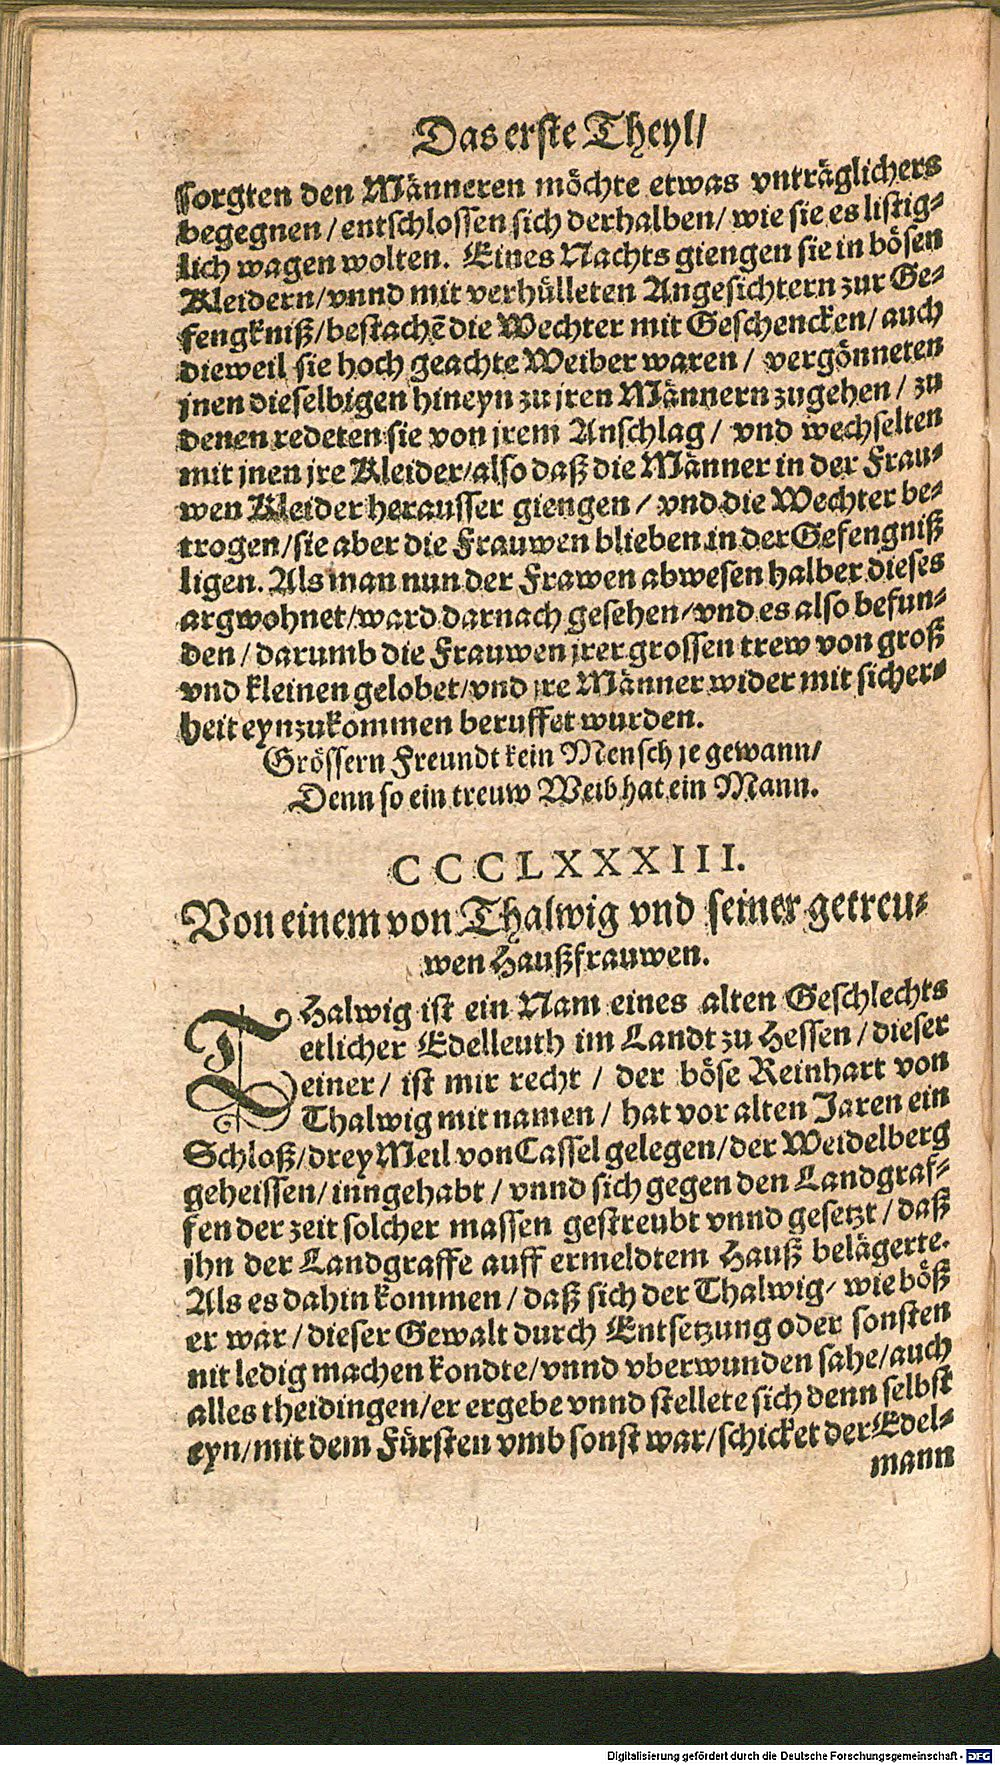 Das erste Theyl/
sorgten den Männeren möchte etwas vnträglichers
begegnen/entschlossen sich derhalben/wie sie es listig⸗
lich wagen wolten. Eines Nachts giengen sie in bösen
Kleidern/vnnd mit verhülleten Angesichtern zur Ge⸗
fengkniß/bestachẽ die Wechter mit Geschencken/auch
dieweil sie hoch geachte Weiber waren/ vergönneten
jnen dieselbigen hineyn zu jren Männern zugehen/ zu
denen redeten sie von jrem Anschlag/ vnd wechselten
mit jnen jre Kleider/also daß die Männer in der Frau⸗
wen Kleider herausser giengen/ vnd die Wechter be⸗
trogen/sie aber die Frauwen blieben in der Gefengniß
ligen. Als man nun der Frawen abwesen halber dieses
argwohnet/ward darnach gesehen/vnd es also befun⸗
den/darumb die Frauwen jrer grossen trew von groß
vnd kleinen gelobet/vnd jre Männer wider mit sicher⸗
heit eynzukommen beruffet wurden.
Grössern Freundt kein Mensch je gewann/
Denn so ein treuw Weib hat ein Mann.
CCCLXXXIII.
Von einem von Thalwig vnd seiner getreu⸗
wen Haußfrauwen.
THalwig ist ein Nam eines alten Geschlechts
etlicher Edelleuth im Landt zu Hessen/dieser
einer/ ist mir recht/ der böse Reinhart von
Thalwig mit namen/ hat vor alten Jaren ein
Schloß/drey Meil von Cassel gelegen/der Weidelberg
geheissen/inngehabt/vnnd sich gegen den Landgraf⸗
fen der zeit solcher massen gestreubt vnnd gesetzt/daß
jhn der Landgraffe auff ermeldtem Hauß belägerte.
Als es dahin kommen/daß sich der Thalwig/ wie böß
er war/dieser Gewalt durch Entsetzung oder sonsten
nit ledig machen kondte/vnnd vberwunden sahe/auch
alles theidingen/er ergebe vnnd stellete sich denn selbst
eyn/mit dem Fürsten vmb sonst war/schicket der Edel⸗
mann
Digitalisierung gefördert durch die Deutsche Forschungsgemeinschaft - DFG